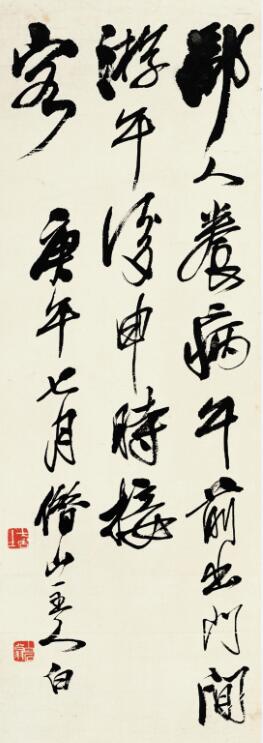 鄙人養病午前出門閒
游午後申時接
客
庚午七月借山主人白